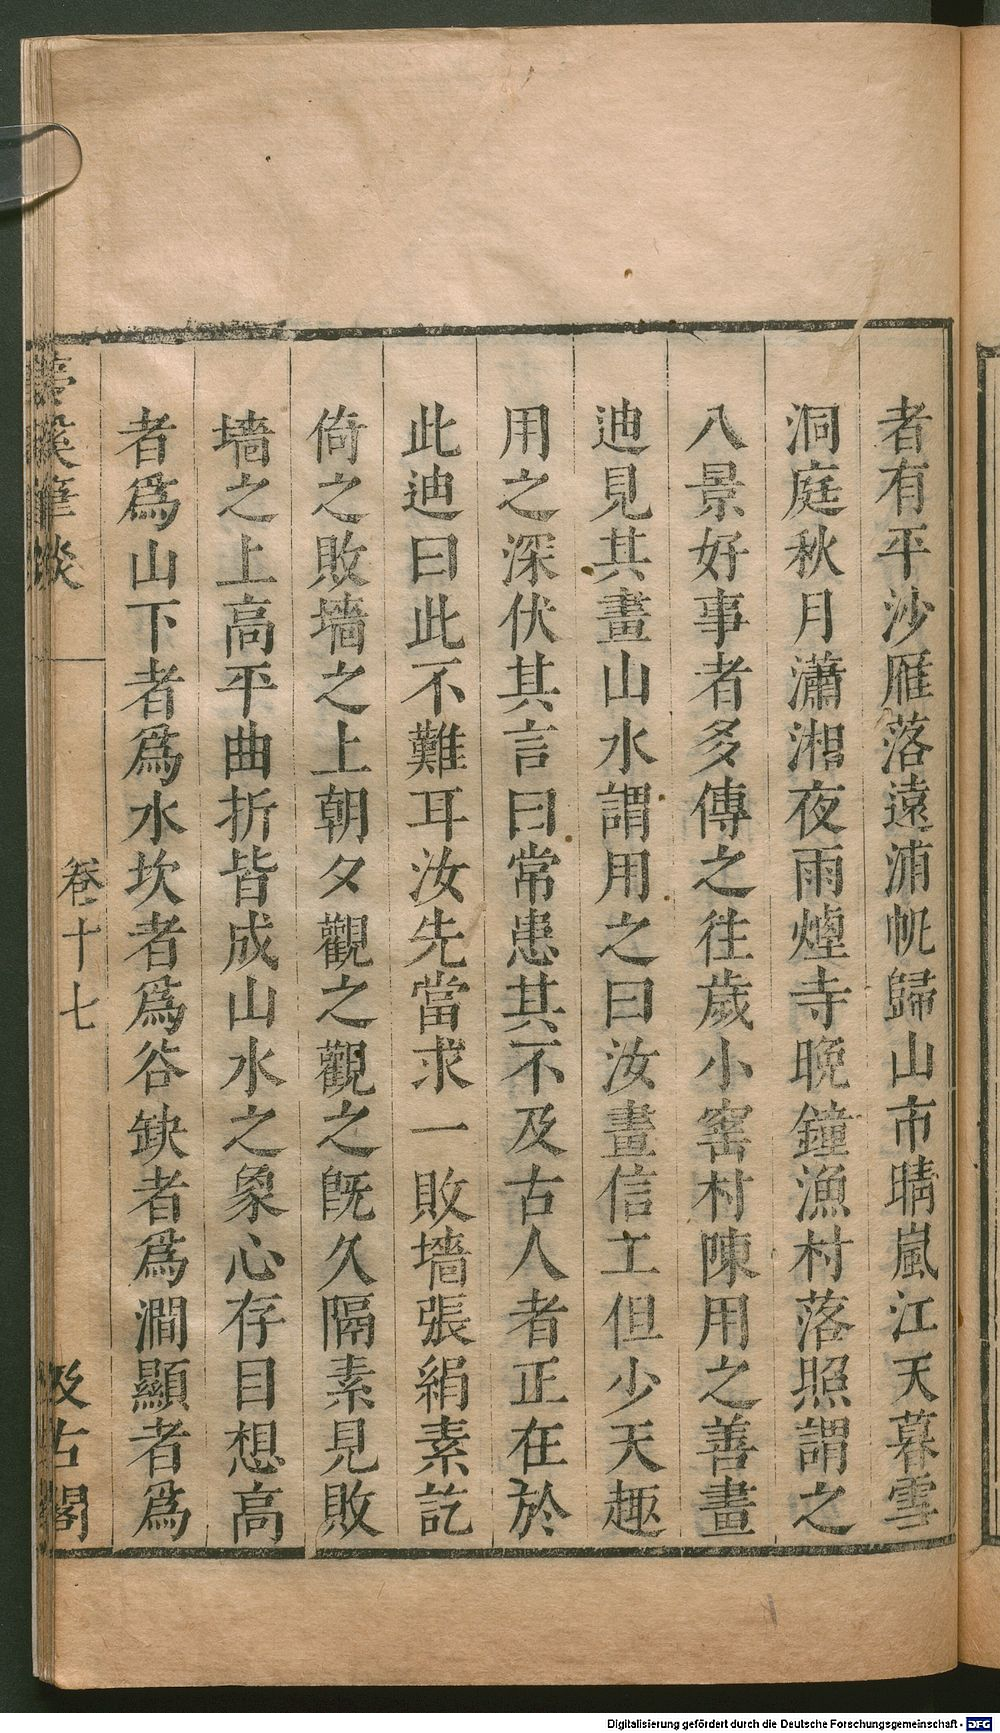 者有平沙雁落遠浦帆歸山市晴嵐江天暮雪
洞庭秋月瀟湘夜雨煙寺晚鐘漁村落照謂之
八景好事者多傳之往歲小窰村陳用之善畫
迪見其畫山水謂用之曰汝畫信工但少天趣
用之深伏其言曰常患其不及古人者正在於
此迪曰此不難耳汝先當求一敗墻張絹素訖
倚之敗墻之上朝夕觀之觀之旣久隔素見敗
墻之上高平曲折皆成山水之象心存目想高
者爲山下者爲水坎者爲谷缺者爲澗顯者爲
夢溪筆談
卷十七
汲古閣
Digitalisierung gefördert durch die Deutsche Forschungsgemeinschaft - DFG